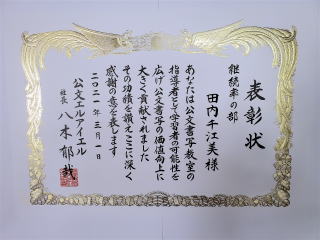 表彰状
継続率の部
田内千江美様
あなたは公文書写教室の
指導者として学習者の可能性を
広げ公文書写の価値向上に
大きく貢献されました
その功績を讃えここに深く
感謝の意を表します
二〇二一年三月一日
公文エルアイエル
社長 八木郁哉